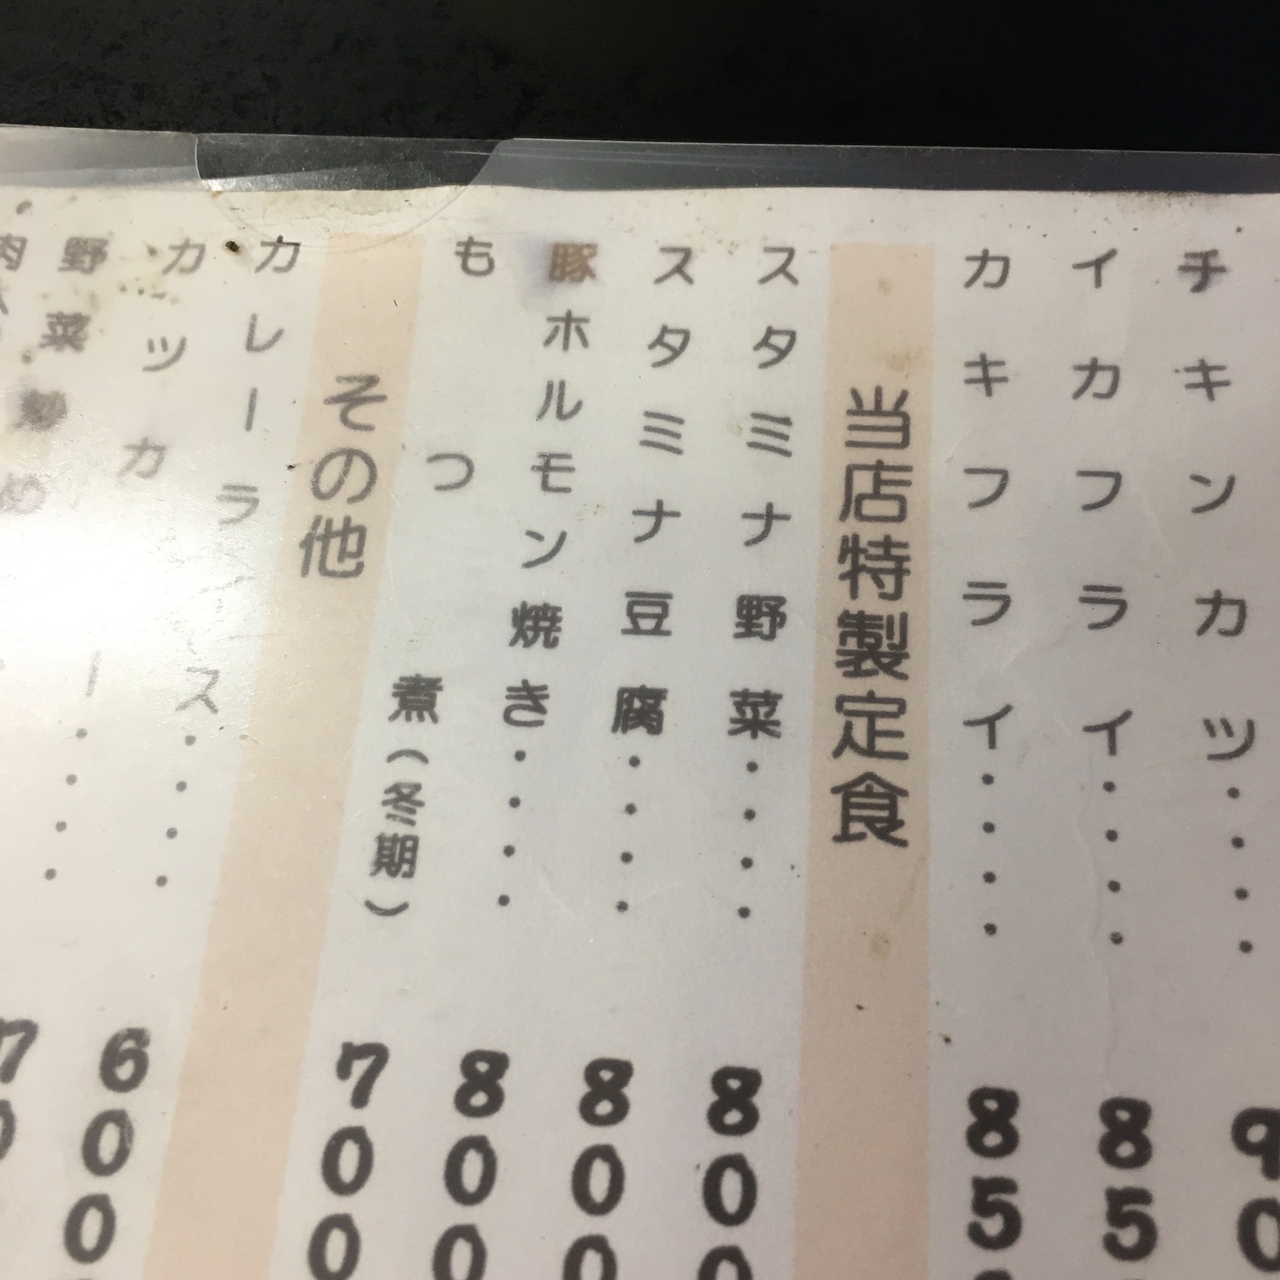 チキンカツ・・・・90
イカフライ・・・・85
カキフライ・・・・85
当店特製定食
スタミナ野菜・・・・800
スタミナ豆腐・・・・800
豚ホルモン焼き・・・・800
もつ煮(冬期)700
その他
カレーライス・・・・600
カツカレー・・・・70
野菜炒め
肉